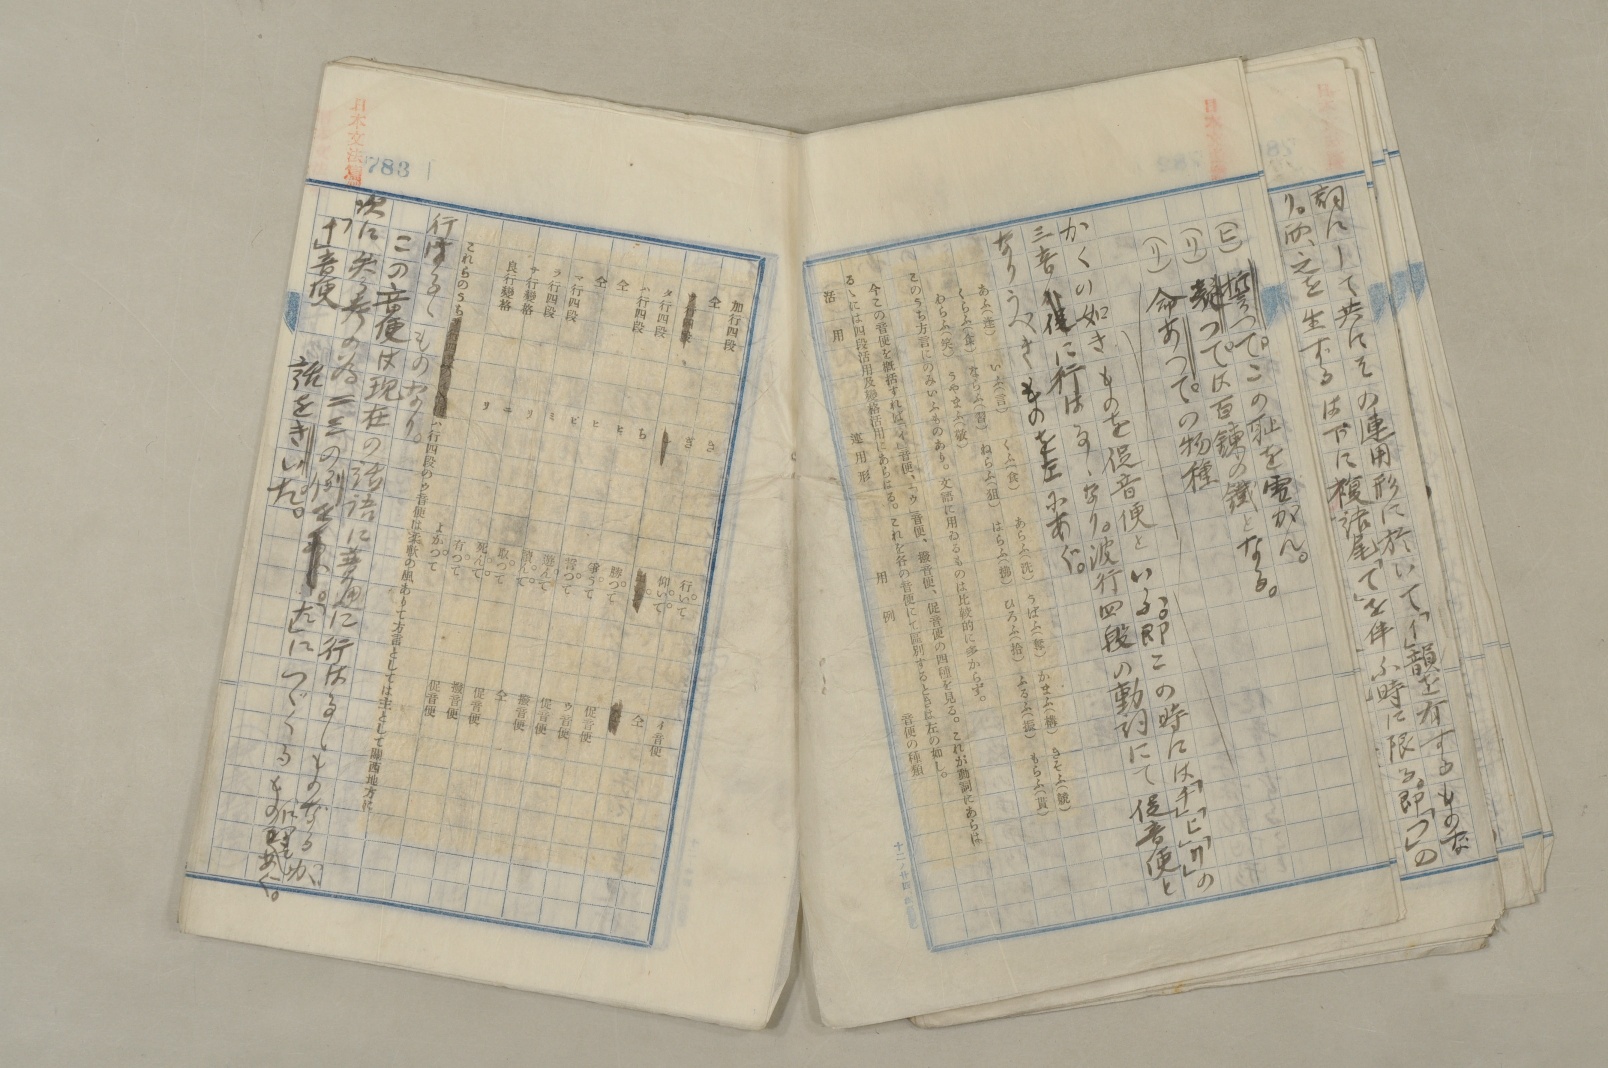 詞にして共にその連用形に於いて「イ」韻を有するものな
り。而、之を生ずるは下に複語尾「て」を伴ふ時に限る。即「つ」の
(ヒ) 誓つて。この耻を雪がん。
(リ) つて。は百錬の鐵となる。
(リ) 命あつて。の物種
かくの如きものを促音便といふ。即この時には「チ」「ヒ」「リ」の
三音便に行はるゝなり。波行四段の動詞にて促音便と
なりうべきものを左にあぐ。
あふ(逢) いふ(言) くふ(食) あらふ(洗) うばふ(奪) かまふ(構) きそふ(競)
くらふ(食) ならふ(習) ねらふ(狙) はらふ(拂) ひろふ(拾) ふるふ(振) もらふ(貰)
わらふ(笑) うやまふ(敬)
このうち方言にのみいふものあり。文語に用ゐるものは比較的に多からず。
今この音便を概括すれば、イ音便、ウ音便、撥音便、促音便の四種を見る。これが動詞にあらは
るゝには四段活用及變格活用にあらはる。これを各の音便にて區別するときは左の如し。
活用 連用形 用例 音便の種類
加行四段 き 行いて イ音便
仝 ぎ 仰いて 仝
タ行四段 ち 勝つて 促音便
ハ行四段 ヒ 笑うて ウ音便
仝 ヒ 言つて 促音便
仝 ビ 遊んで 撥音便
マ行四段 ミ 讀んで 仝
ラ行四段 リ 取つて 促音便
ナ行變格 ニ 死んて 撥音便
良行變格 リ 有つて 促音便
よかつて
これらのうち ハ行四段のウ音便は柔軟の風ありて方言としては主として關西地方に
行はるゝものなり。
この音便は現在の談語に普通に行はるゝものなるが、
次に参考の為二三の例を「た」につゞくるものにてあぐ。
イ音便 話をきいた。
日本文法
783